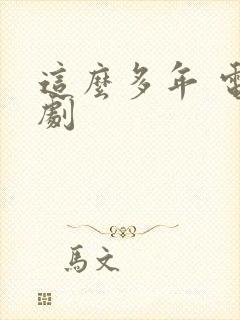 這麼多年 電
劇
馬文